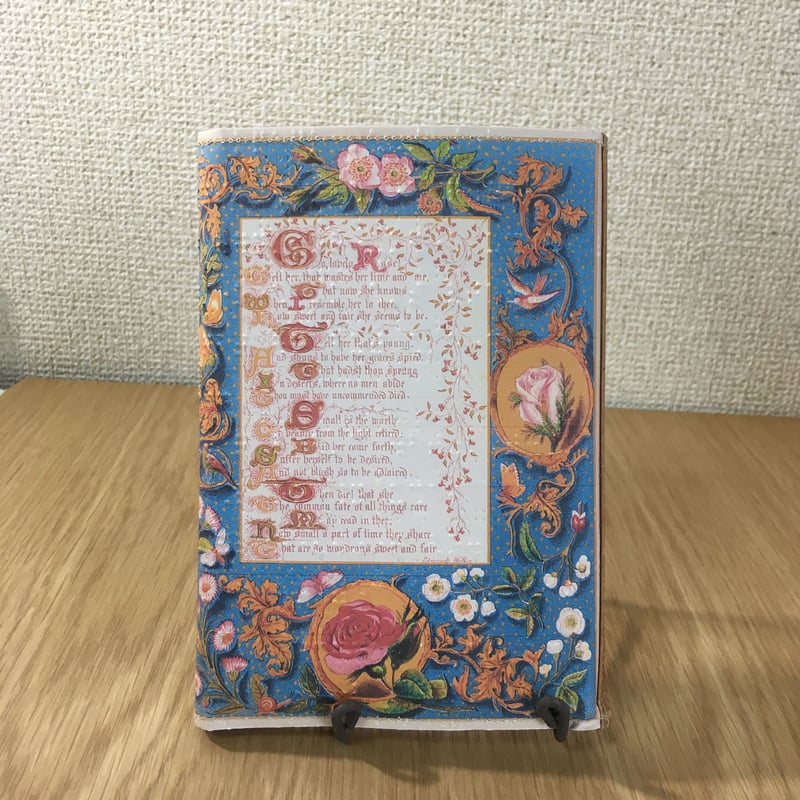 Go, lovely Rose!
Tell her, that wastes her time and me,
That now she knows,
When I resemble her to thee,
How sweet and fair she seems to be.
Tell her that's young,
And shuns to have her graces spied,
That hadst thou sprung
In deserts, where no men abide
Thou must have uncommended died.
Small is the worth
Of beauty from the light retired;
Bid her come forth,
Suffer herself to be desired,
And not blush so to be admired.
Then die! that she
The common fate of all things rare
May read in thee;
How small a part of time they share
That are so wondrous sweet and fair